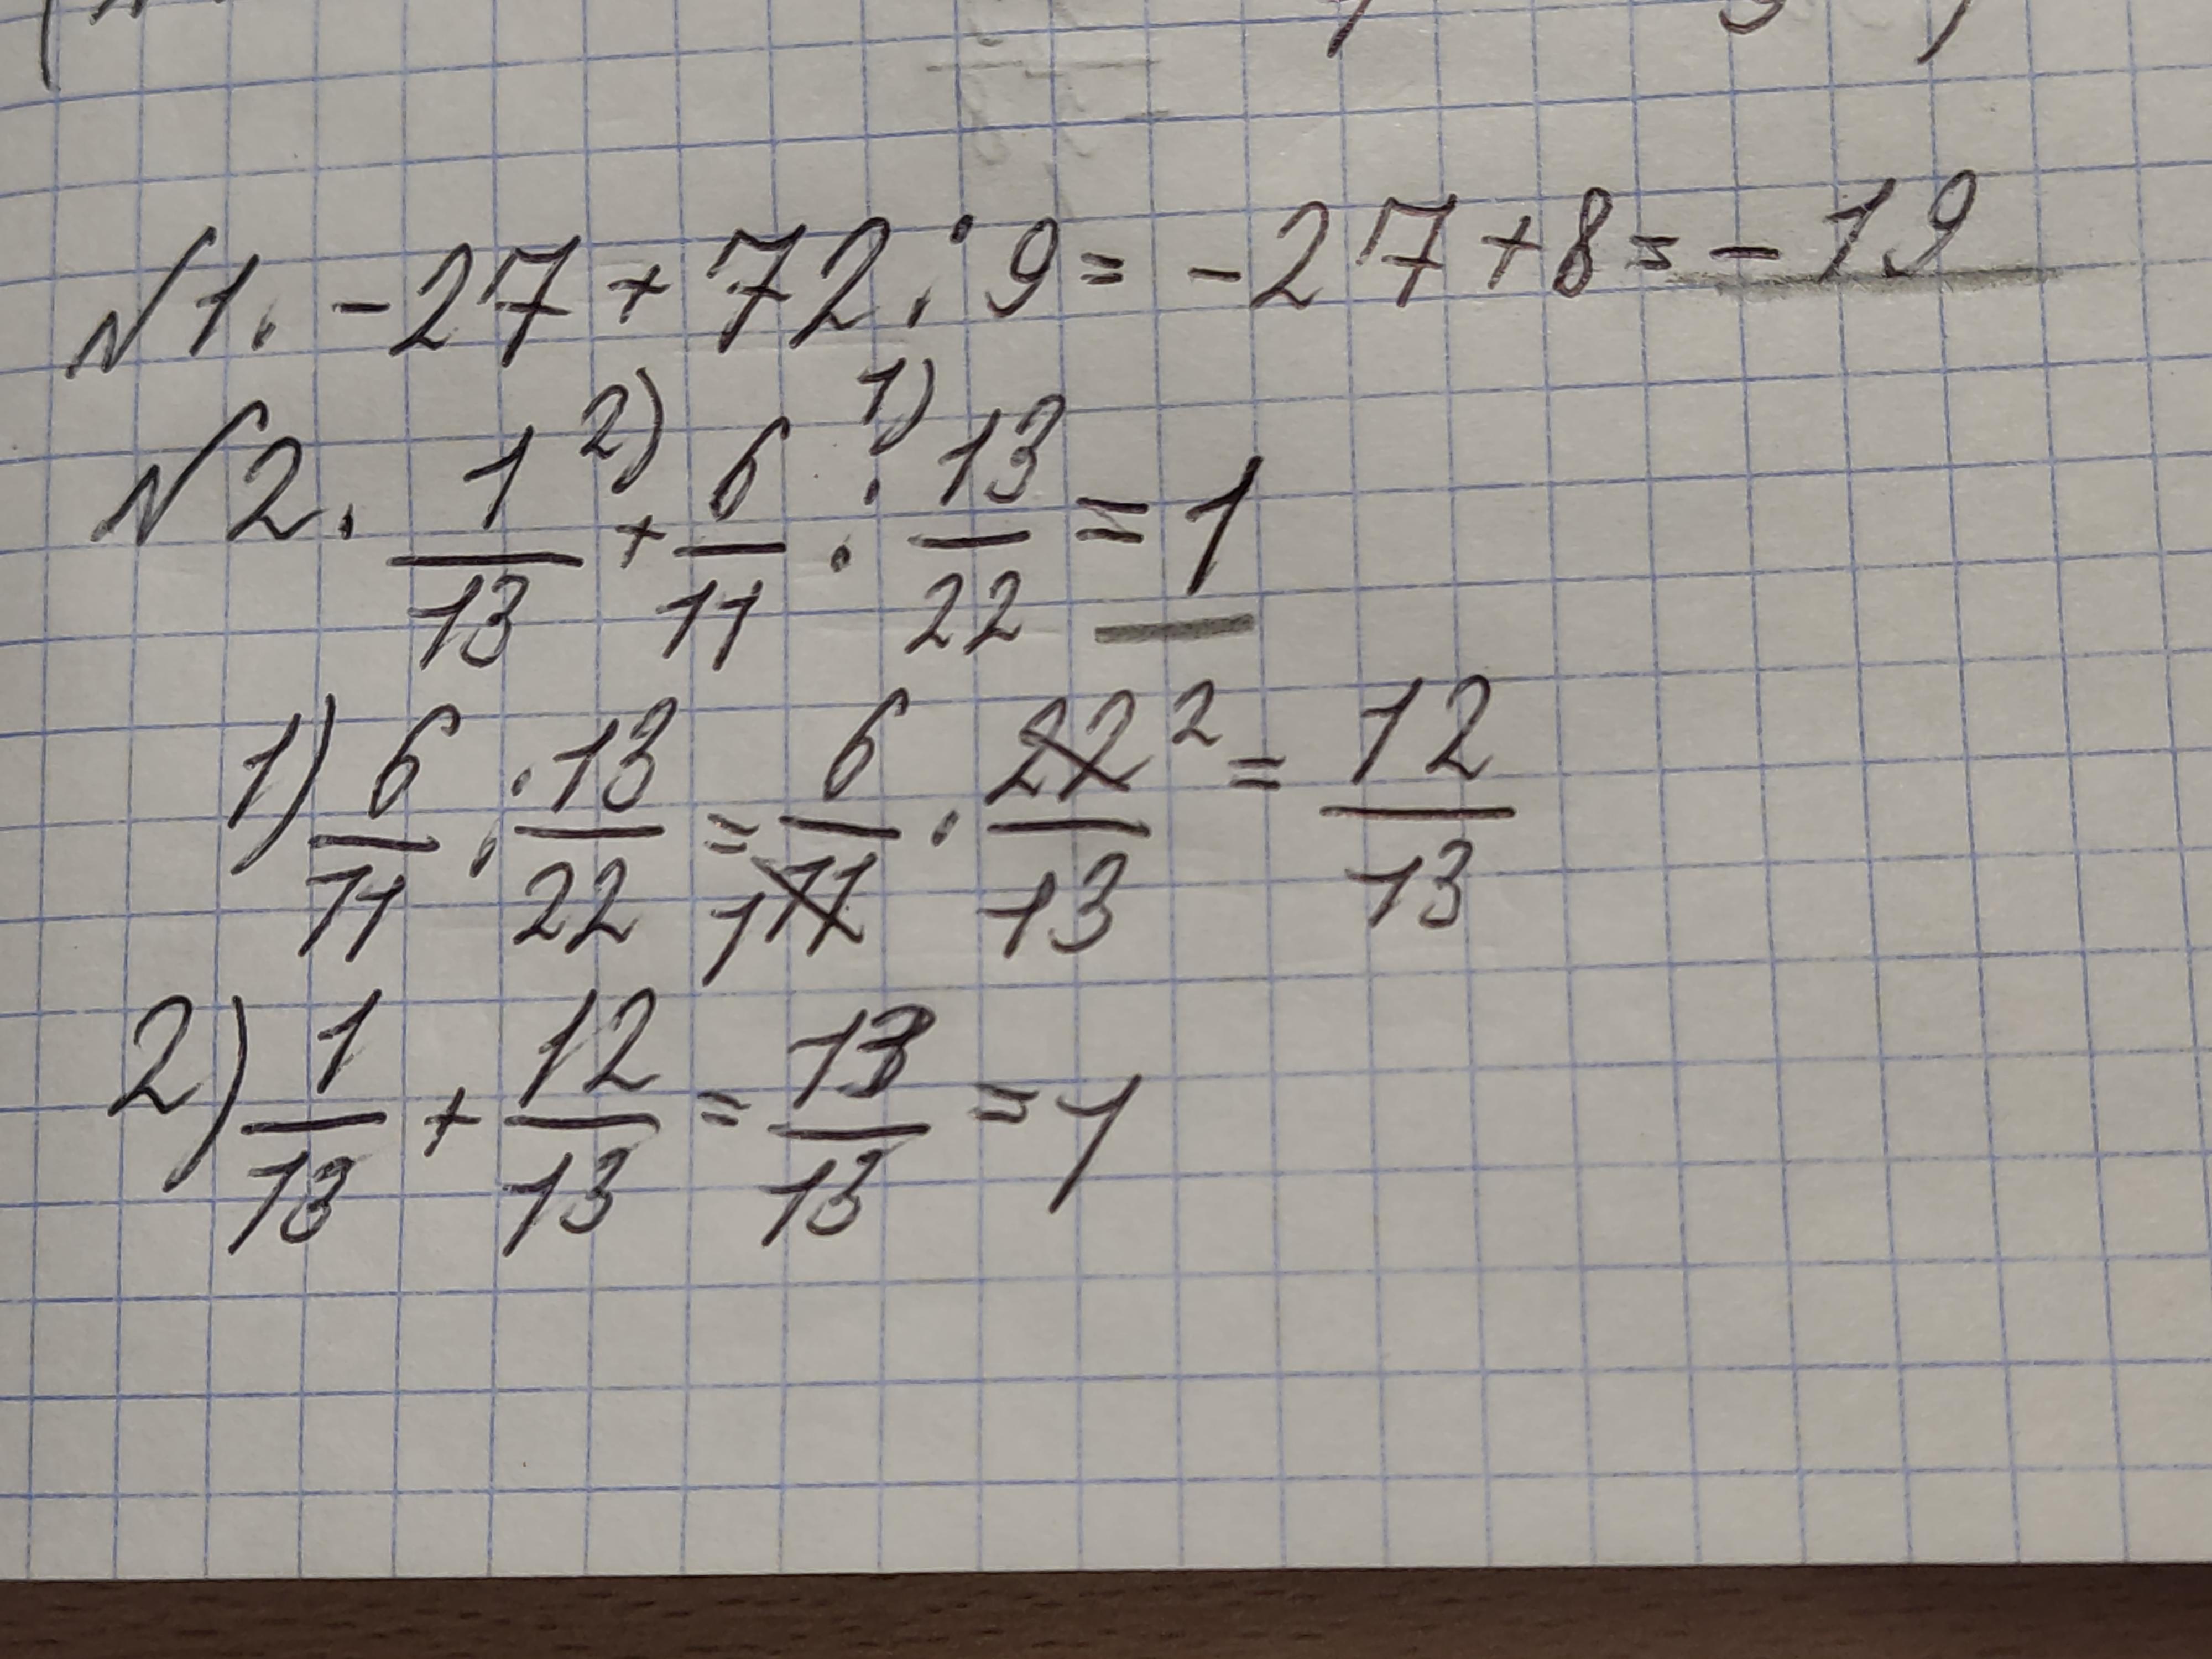 №1. -27+72:9=-27+8=-19
№2. 1/13 2) + 6/11 1) : 13/22 = 1
1) 6/11 : 13/22 = 6/11 1 · 22/13 2 = 12/13
2) 1/13 + 12/13 = 13/13 = 1